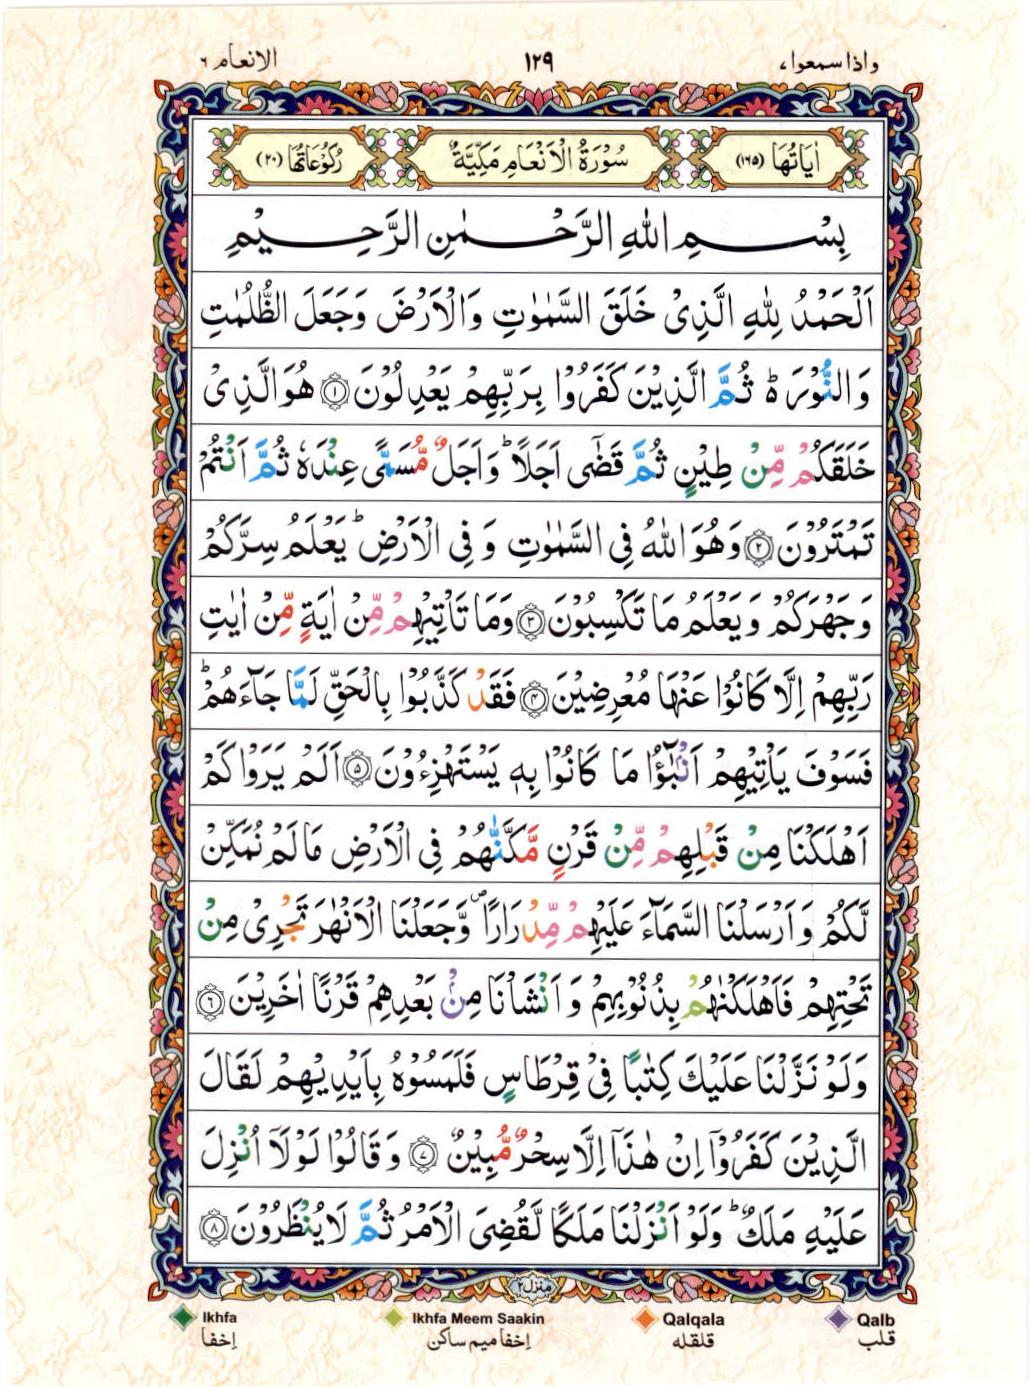 واذا سمعوا ٧ ١٢٩ الانعام ٦
اٰيَاتُهَا (١٦٥) سُوْرَةُ الْاَنْعَامِ مَكِّيَّةٌ رُكُوْعَاتُهَا (٢٠)
بِسْمِ اللّٰهِ الرَّحْمٰنِ الرَّحِيْمِ
اَلْحَمْدُ لِلّٰهِ الَّذِىْ خَلَقَ السَّمٰوٰتِ وَالْاَرْضَ وَجَعَلَ الظُّلُمٰتِ
وَالنُّوْرَ ؕ ثُمَّ الَّذِيْنَ كَفَرُوْا بِرَبِّهِمْ يَعْدِلُوْنَ ۝١ هُوَ الَّذِىْ
خَلَقَكُمْ مِّنْ طِيْنٍ ثُمَّ قَضٰٓى اَجَلًا ؕ وَاَجَلٌ مُّسَمًّى عِنْدَهٗ ثُمَّ اَنْتُمْ
تَمْتَرُوْنَ ۝٢ وَهُوَ اللّٰهُ فِى السَّمٰوٰتِ وَفِى الْاَرْضِ ؕ يَعْلَمُ سِرَّكُمْ
وَجَهْرَكُمْ وَيَعْلَمُ مَا تَكْسِبُوْنَ ۝٣ وَمَا تَاْتِيْهِمْ مِّنْ اٰيَةٍ مِّنْ اٰيٰتِ
رَبِّهِمْ اِلَّا كَانُوْا عَنْهَا مُعْرِضِيْنَ ۝٤ فَقَدْ كَذَّبُوْا بِالْحَقِّ لَمَّا جَآءَهُمْ ؕ
فَسَوْفَ يَاْتِيْهِمْ اَنْۢبٰٓؤُا مَا كَانُوْا بِهٖ يَسْتَهْزِءُوْنَ ۝٥ اَلَمْ يَرَوْا كَمْ
اَهْلَكْنَا مِنْ قَبْلِهِمْ مِّنْ قَرْنٍ مَّكَّنّٰهُمْ فِى الْاَرْضِ مَا لَمْ نُمَكِّنْ
لَّكُمْ وَاَرْسَلْنَا السَّمَآءَ عَلَيْهِمْ مِّدْرَارًا ۪ وَّجَعَلْنَا الْاَنْهٰرَ تَجْرِىْ مِنْ
تَحْتِهِمْ فَاَهْلَكْنٰهُمْ بِذُنُوْبِهِمْ وَاَنْشَاْنَا مِنْۢ بَعْدِهِمْ قَرْنًا اٰخَرِيْنَ ۝٦
وَلَوْ نَزَّلْنَا عَلَيْكَ كِتٰبًا فِىْ قِرْطَاسٍ فَلَمَسُوْهُ بِاَيْدِيْهِمْ لَقَالَ
الَّذِيْنَ كَفَرُوْٓا اِنْ هٰذَآ اِلَّا سِحْرٌ مُّبِيْنٌ ۝٧ وَقَالُوْا لَوْلَآ اُنْزِلَ
عَلَيْهِ مَلَكٌ ؕ وَلَوْ اَنْزَلْنَا مَلَكًا لَّقُضِىَ الْاَمْرُ ثُمَّ لَا يُنْظَرُوْنَ ۝٨
منزل ٢
Ikhfa Ikhfa Meem Saakin Qalqala Qalb
اِخفا اِخفا ميم ساكن قلقله قلب